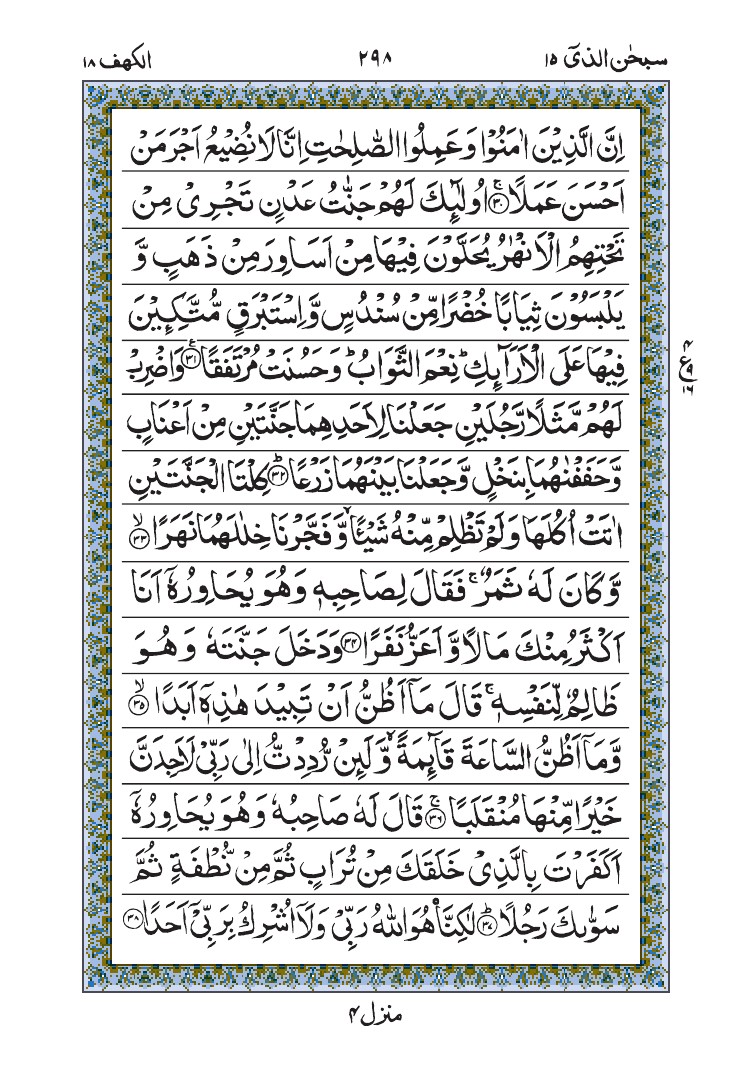 سبحٰن الذیۤ ۱۵
۲۹۸
الکهف ۱۸
اِنَّ الَّذِيْنَ اٰمَنُوْا وَ عَمِلُوا الصّٰلِحٰتِ اِنَّا لَا نُضِيْعُ اَجْرَ مَنْ
اَحْسَنَ عَمَلًا ۚ‏﴿۳۰﴾ اُولٰٓئِكَ لَهُمْ جَنّٰتُ عَدْنٍ تَجْرِىْ مِنْ
تَحْتِهِمُ الْاَنْهٰرُ يُحَلَّوْنَ فِيْهَا مِنْ اَسَاوِرَ مِنْ ذَهَبٍ وَّ
يَلْبَسُوْنَ ثِيَابًا خُضْرًا مِّنْ سُنْدُسٍ وَّ اِسْتَبْرَقٍ مُّتَّكِـِٕيْنَ
فِيْهَا عَلَى الْاَرَآئِكِ‌ؕ نِعْمَ الثَّوَابُ ؕ وَ حَسُنَتْ مُرْتَفَقًا ﴿۳۱﴾ۧ وَاضْرِبْ
لَهُمْ مَّثَلًا رَّجُلَيْنِ جَعَلْنَا لِاَحَدِهِمَا جَنَّتَيْنِ مِنْ اَعْنَابٍ
وَّ حَفَفْنٰهُمَا بِنَخْلٍ وَّ جَعَلْنَا بَيْنَهُمَا زَرْعًا ؕ‏﴿۳۲﴾ كِلْتَا الْجَنَّتَيْنِ
اٰتَتْ اُكُلَهَا وَلَمْ تَظْلِمْ مِّنْهُ شَيْـًٔا ۙ وَّ فَجَّرْنَا خِلٰلَهُمَا نَهَرًا ۙ‏﴿۳۳﴾
وَّ كَانَ لَهٗ ثَمَرٌ‌ ۚ فَقَالَ لِصَاحِبِهٖ وَهُوَ يُحَاوِرُهٗۤ اَنَا
اَكْثَرُ مِنْكَ مَالًا وَّ اَعَزُّ نَفَرًا ﴿۳۴﴾ وَدَخَلَ جَنَّتَهٗ وَ هُوَ
ظَالِمٌ لِّنَفْسِهٖ‌ ۚ قَالَ مَاۤ اَظُنُّ اَنْ تَبِيْدَ هٰذِهٖۤ اَبَدًا ۙ‏﴿۳۵﴾
وَّمَاۤ اَظُنُّ السَّاعَةَ قَآئِمَةً ۙ وَّلَئِنْ رُّدِدْتُّ اِلٰى رَبِّىْ لَاَجِدَنَّ
خَيْرًا مِّنْهَا مُنْقَلَبًا‌ ۚ‏﴿۳۶﴾ قَالَ لَهٗ صَاحِبُهٗ وَهُوَ يُحَاوِرُهٗۤ
اَكَفَرْتَ بِالَّذِىْ خَلَقَكَ مِنْ تُرَابٍ ثُمَّ مِنْ نُّطْفَةٍ ثُمَّ
سَوّٰىكَ رَجُلًا ؕ‏﴿۳۷﴾ لٰـكِنَّا۟ هُوَ اللّٰهُ رَبِّىْ وَلَاۤ اُشْرِكُ بِرَبِّىْۤ اَحَدًا ﴿۳۸﴾
۴
ع
۹
۱۶
منزل ۴